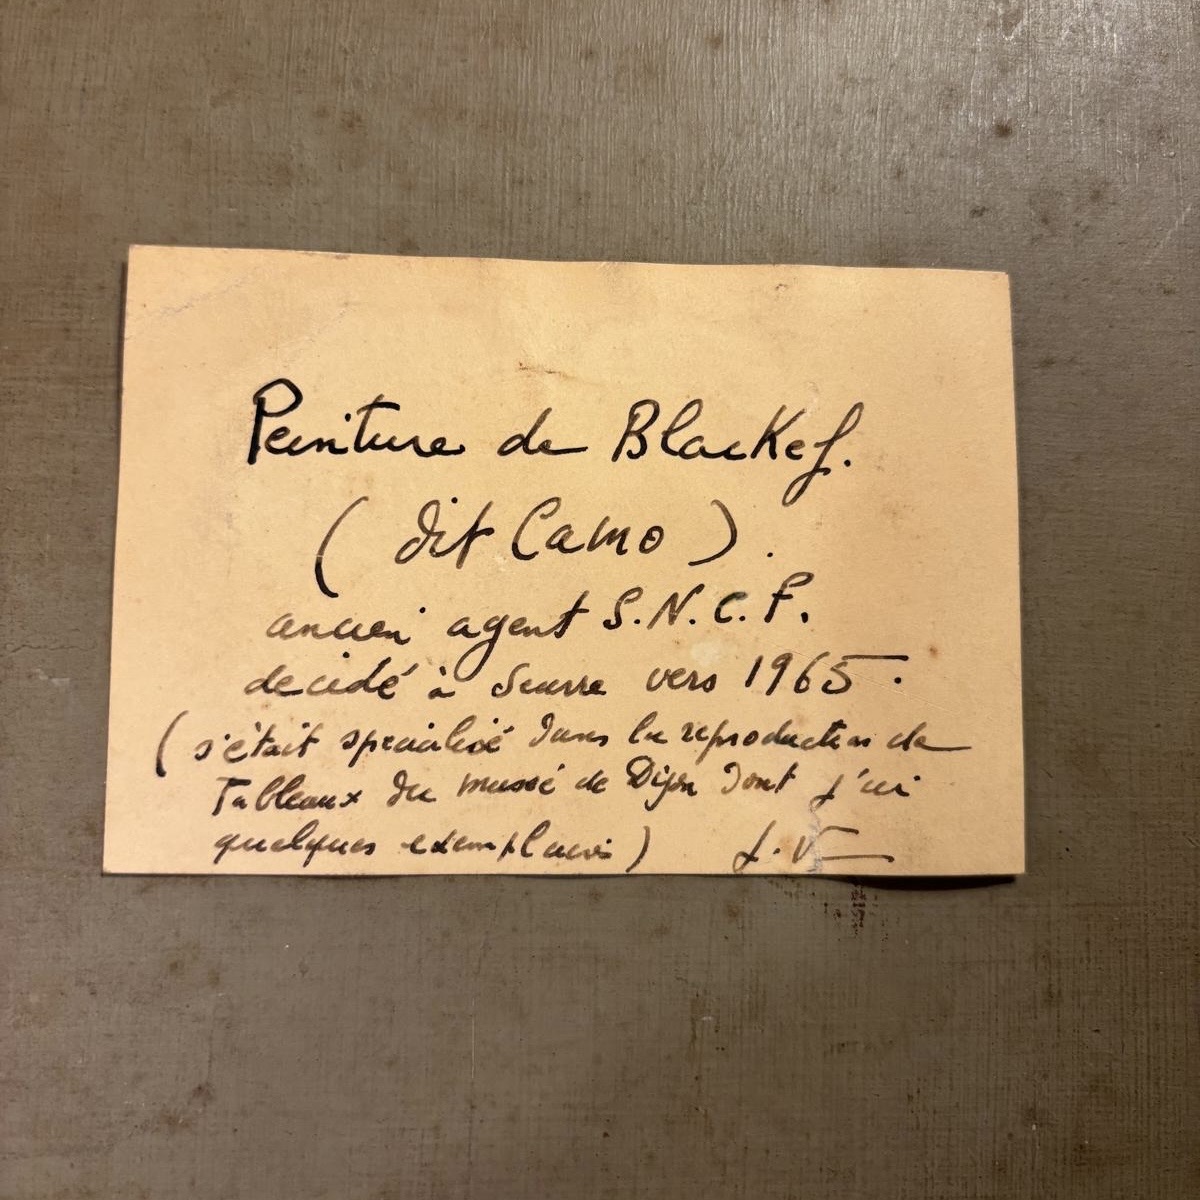 Peinture de Blackef.
( dit Camo ).
ancien agent S.N.C.F.
decidé à Seurre vers 1965.
( s'était specialisé dans la reproduction de
Tableaux du musée de Dijon dont j'ai
quelques exemplaires) J. V